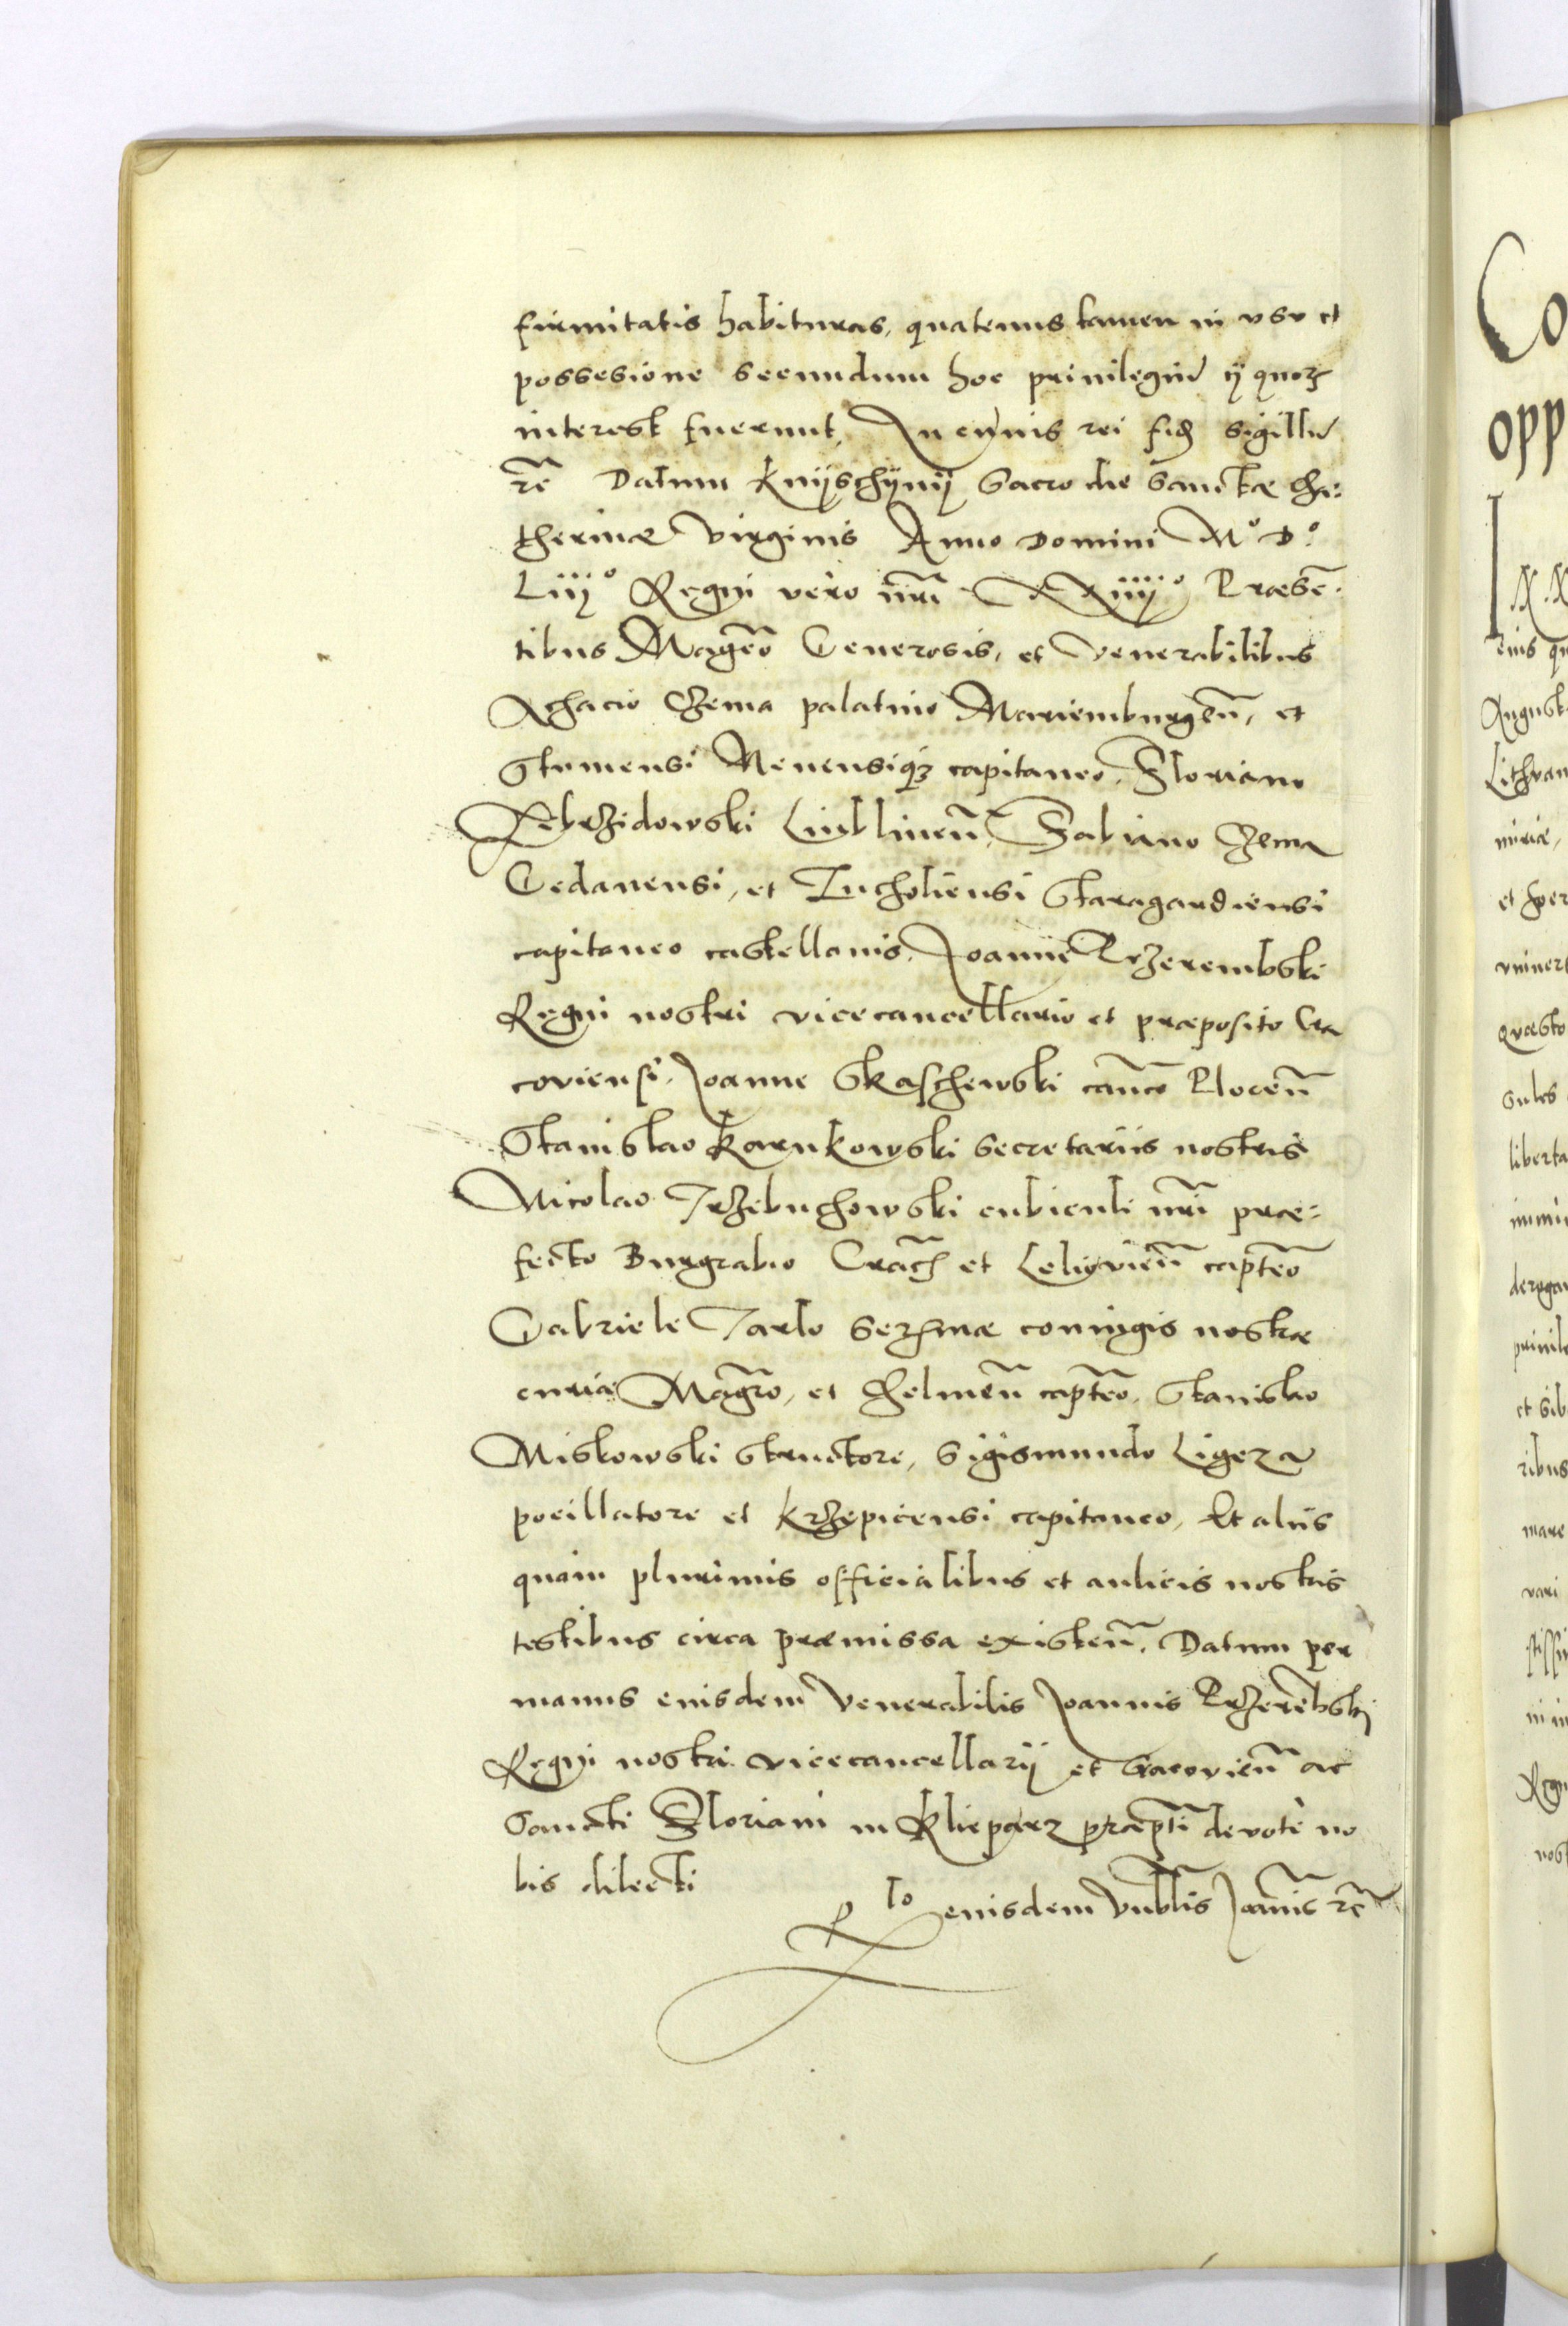 firmitatis habituras, quatenus tamen in vsu et
possesione secundum hoc priuilegiū ij quorꝫ
interest fuerunt, In cuius rei fidē sigillū
rē Datum Knijschijnij Sacro die Sanctæ Cha:
therinæ Virginis Anno Domini Mº Dº
Liijº Regni vero nrī XXiiijº Præsē-
tibus Magcō Generosis, et Venerabilibus
Achacio Czema palatino Mariemburgeñ, et
Stumensi Meuensiqꝫ capitaneo, Floriano
Zebrzidowski Lublineñ, Fabiano Czema
Gedanensi, et Tucholiensi Staragardiensi
capitaneo castellanis, Joanne Przerembski
Regni nostri vicecancellario et præposito Cra
coviensi, Joanne Staschewski canco Ploceñ
Stanislao Karnkowski secretariis nostris
Nicolao Trzebuchowski cubiculi nrī præ:
fecto Burgrabio Crach et Leloviēn captēo
Gabriele Tarlo Serᵐæ coniugis nostræ
curiæ Magrō, et Chelmeñ captēo, Stanislao
Miskowski structore, Sigismundo Ligeza
pocillatore et Krzepicensi capitaneo, Et aliis
quam plurimis officialibus et aulicis nostris
testibus circa præmissa existeñ. Datum per
manus eiusdem Venerabilis Joannis Przerēbski
Regni nostri vicecancellarij et Gracovieñ ac
Sancti Floriani in Klieparz præptī devote no
bis dilecti
Rlo eiusdem Vnblis Joānis rē
Co
opp